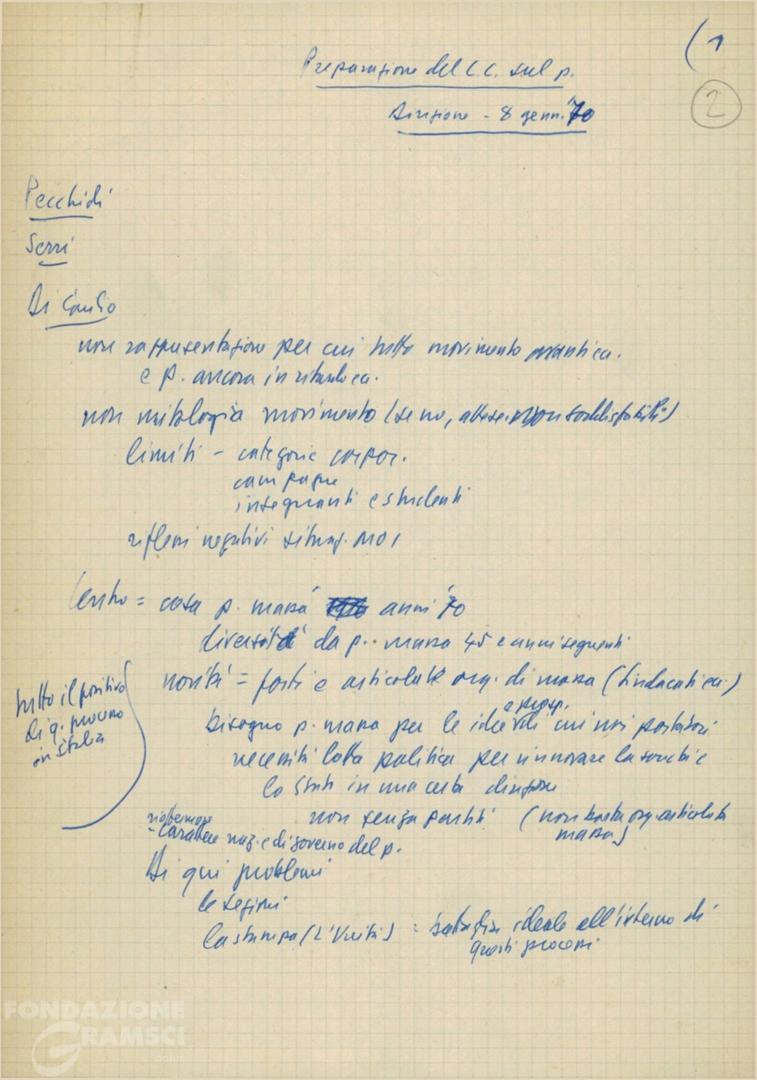 (1
2
Preparazione del C.C. sul p.
Direzione - 8 genn. '70
Pecchioli
Serri
Di Giulio
non rappresentazione per cui tutto movimento avanti ecc.
e p. ancora in ritardo ecc.
non mitologia movimento (se no, attese non soddisfatte)
limiti - categorie corpor.
campagne
insegnanti e studenti
riflessi negativi situaz. noi
Centro = cosa p. massa anni '70
diversità da p. massa 45 e anni seguenti
novità = forti e articolate org. di massa (sindacati ecc.)
bisogno p. massa per le idee e prosp. di cui noi portatori
necessità lotta politica per rinnovare la società e
lo Stato in una certa direzione
non senza partiti (non basta org. articolata
massa)
tutto il positivo
di q. processo
in Italia
riaffermare
- carattere naz. e di governo del p.
Di qui problemi
le sezioni
la stampa (L'Unità) = battaglia ideale all'interno di
questi processi
FONDAZIONE
GRAMSCI
onlus